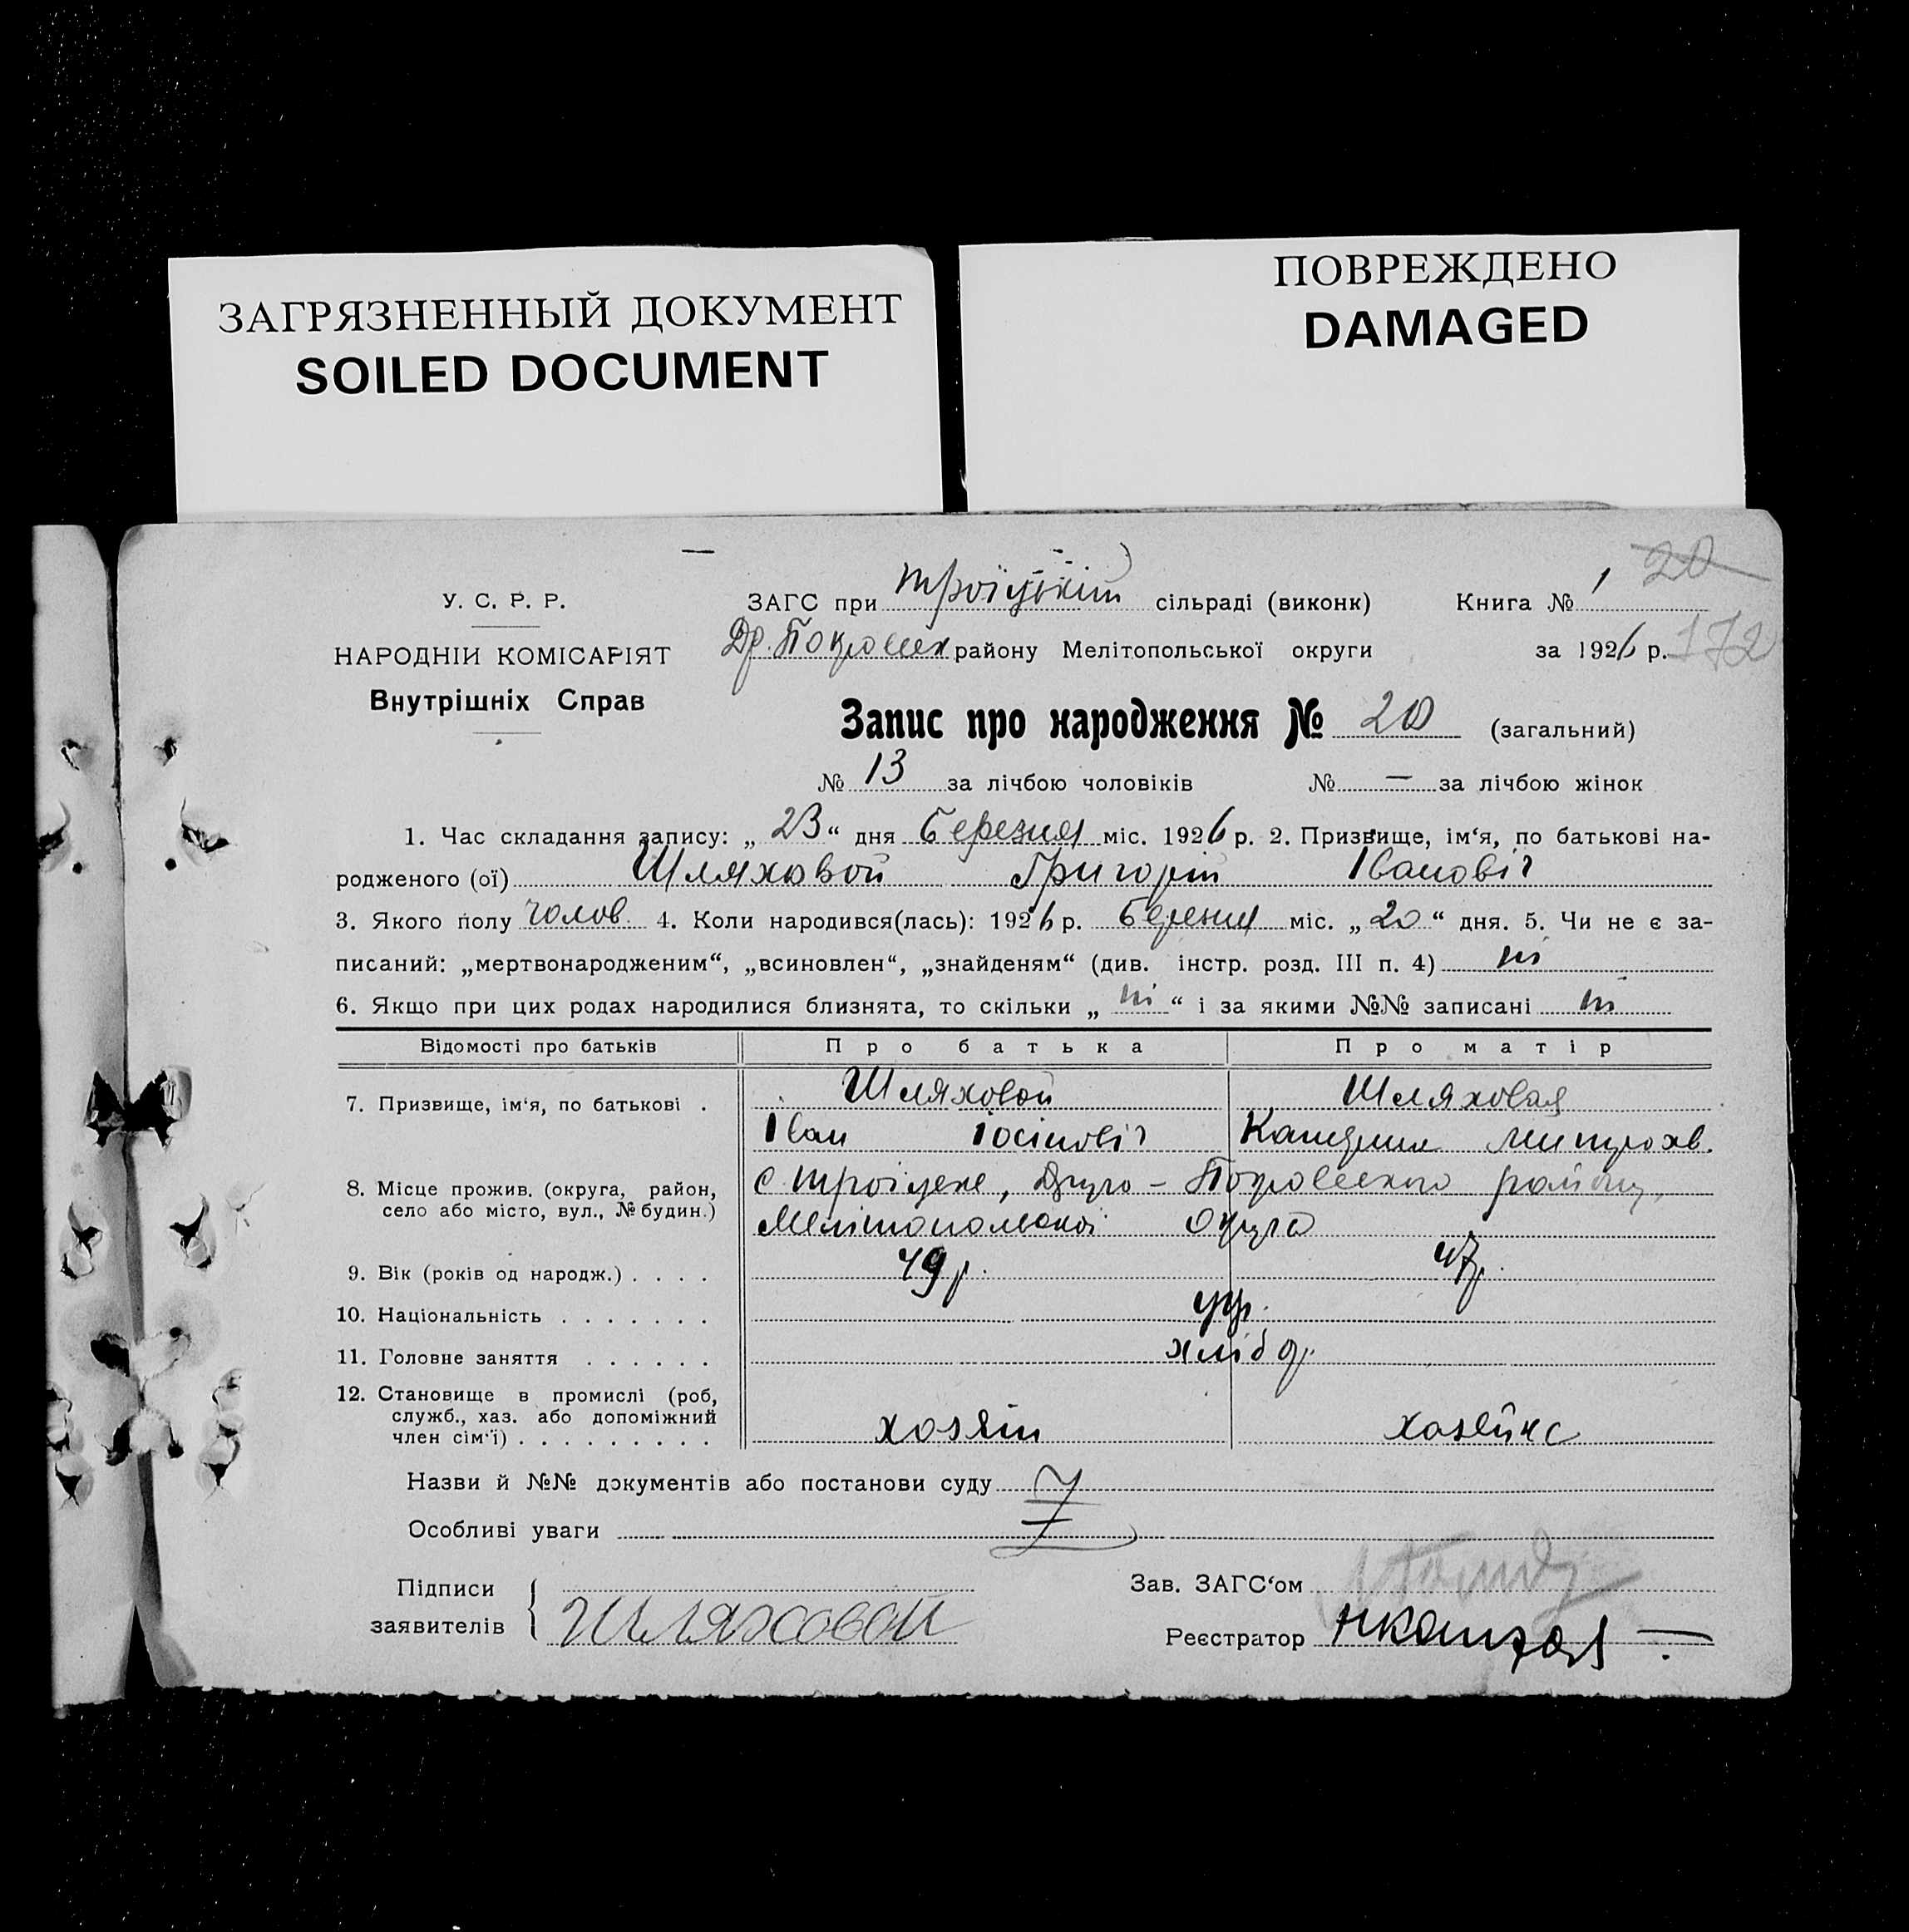 ЗАГРЯЗНЕННЫЙ ДОКУМЕНТ
SOILED DOCUMENT
ПОВРЕЖДЕНО
DAMAGED
20
У. С. Р. Р.
ЗАГС при Троїцькій сільраді (виконк) Книга № 1
НАРОДНІЙ КОМІСАРІЯТ
Др. Покровськ району Мелітопольської округи за 1926 р. 172
Внутрішніх Справ
Запис про народження № 20 (загальний)
№ 13 за лічбою чоловіків № — за лічбою жінок
1. Час складання запису: „ 23 “ дня Березня міс. 1926 р. 2. Призвище, ім‘я, по батькові на-
родженого (ої) Шляховой Григорій Івановіч
3. Якого полу чолов. 4. Коли народився(лась): 1926 р. Березня міс. „ 20 “ дня. 5. Чи не є за-
писаний: „мертвонародженим“, „всиновлен“, „знайденям“ (див. інстр. розд. III п. 4) ні
6. Якщо при цих родах народилися близнята, то скільки „ ні “ і за якими №№ записані ні
Відомості про батьків Про батька Про матір
7. Призвище, ім‘я, по батькові . Шляховой Шляховая
Іван Іосіповіч Катерина Митрохв.
8. Місце прожив. (округа, район, с. Троїцьке, Друго - Покровського району,
село або місто, вул., № будин.) Мелітопольскої Округи
9. Вік (років од народж.) . . . . 49 р. 47 р.
10. Національність . . . . . . . укр.
11. Головне заняття . . . . . . хлібор.
12. Становище в промислі (роб,
служб., хаз. або допоміжний
член сім‘ї) . . . . . . . . . хозяін хозяйка
Назви й №№ документів або постанови суду
Особливі уваги
Підписи
заявителів Шляховой
Зав. ЗАГС‘ом
Реєстратор